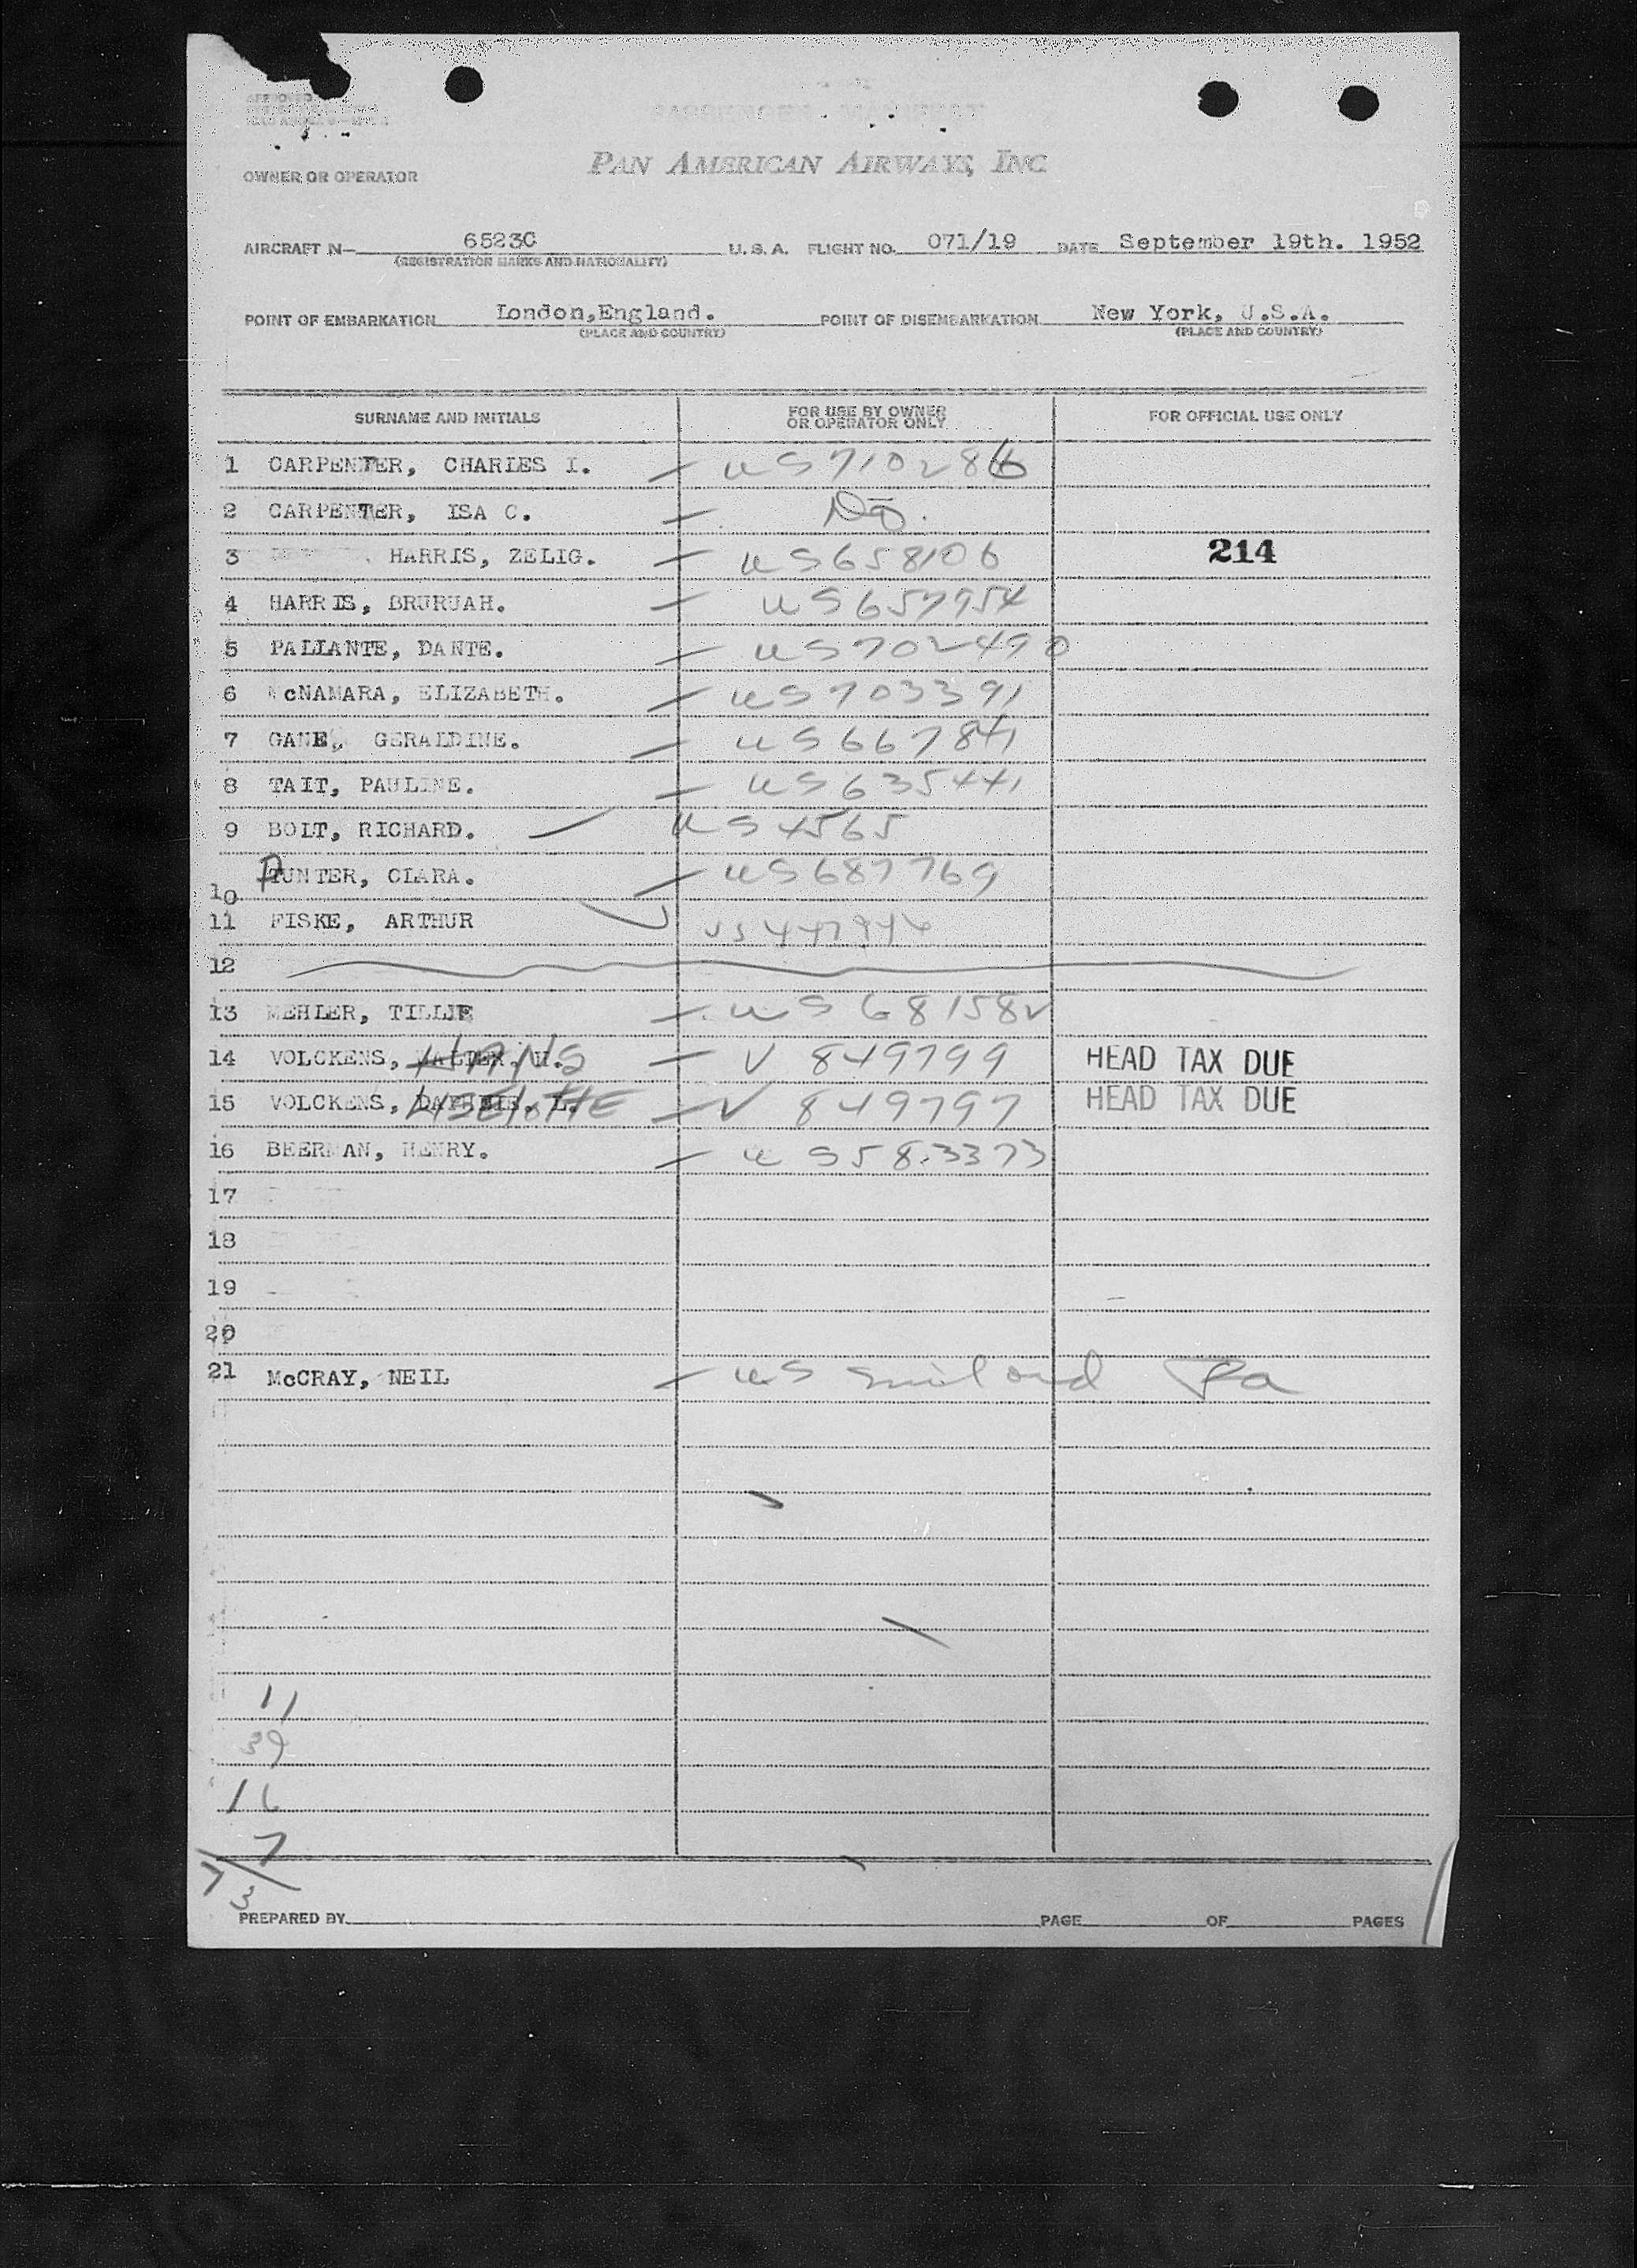 PASSENGER MANIFEST
PAN AMERICAN AIRWAYS, INC
OWNER OR OPERATOR
AIRCRAFT N— 6523C U. S. A. FLIGHT NO. 071/19 DATE September 19th. 1952
(REGISTRATION MARKS AND NATIONALITY)
POINT OF EMBARKATION London,England. POINT OF DISEMBARKATION New York, U.S.A.
(PLACE AND COUNTRY) (PLACE AND COUNTRY)
SURNAME AND INITIALS FOR USE BY OWNER OR OPERATOR ONLY FOR OFFICIAL USE ONLY
1 CARPENTER, CHARLES I. — US 710286
2 CARPENTER, ISA C. — Do.
3 HARRIS, ZELIG. — US 658106 214
4 HARRIS, BRURUAH. — US 657954
5 PALLANTE, DANTE. — US 702490
6 McNAMARA, ELIZABETH. — US 703391
7 GANE, GERALDINE. — US 667841
8 TAIT, PAULINE. — US 635441
9 BOLT, RICHARD. — US 4565
10 HUNTER, CLARA. — US 687769
11 FISKE, ARTHUR US 447944
12
13 MEHLER, TILLIE — US 681582
14 VOLCKENS, HANS — V 849799 HEAD TAX DUE
15 VOLCKENS, LISELOTTE — V 849797 HEAD TAX DUE
16 BEERMAN, HENRY. — US 583373
17
18
19
20
21 McCRAY, NEIL — US Pa
11
39
16
7
73
PREPARED BY PAGE OF PAGES